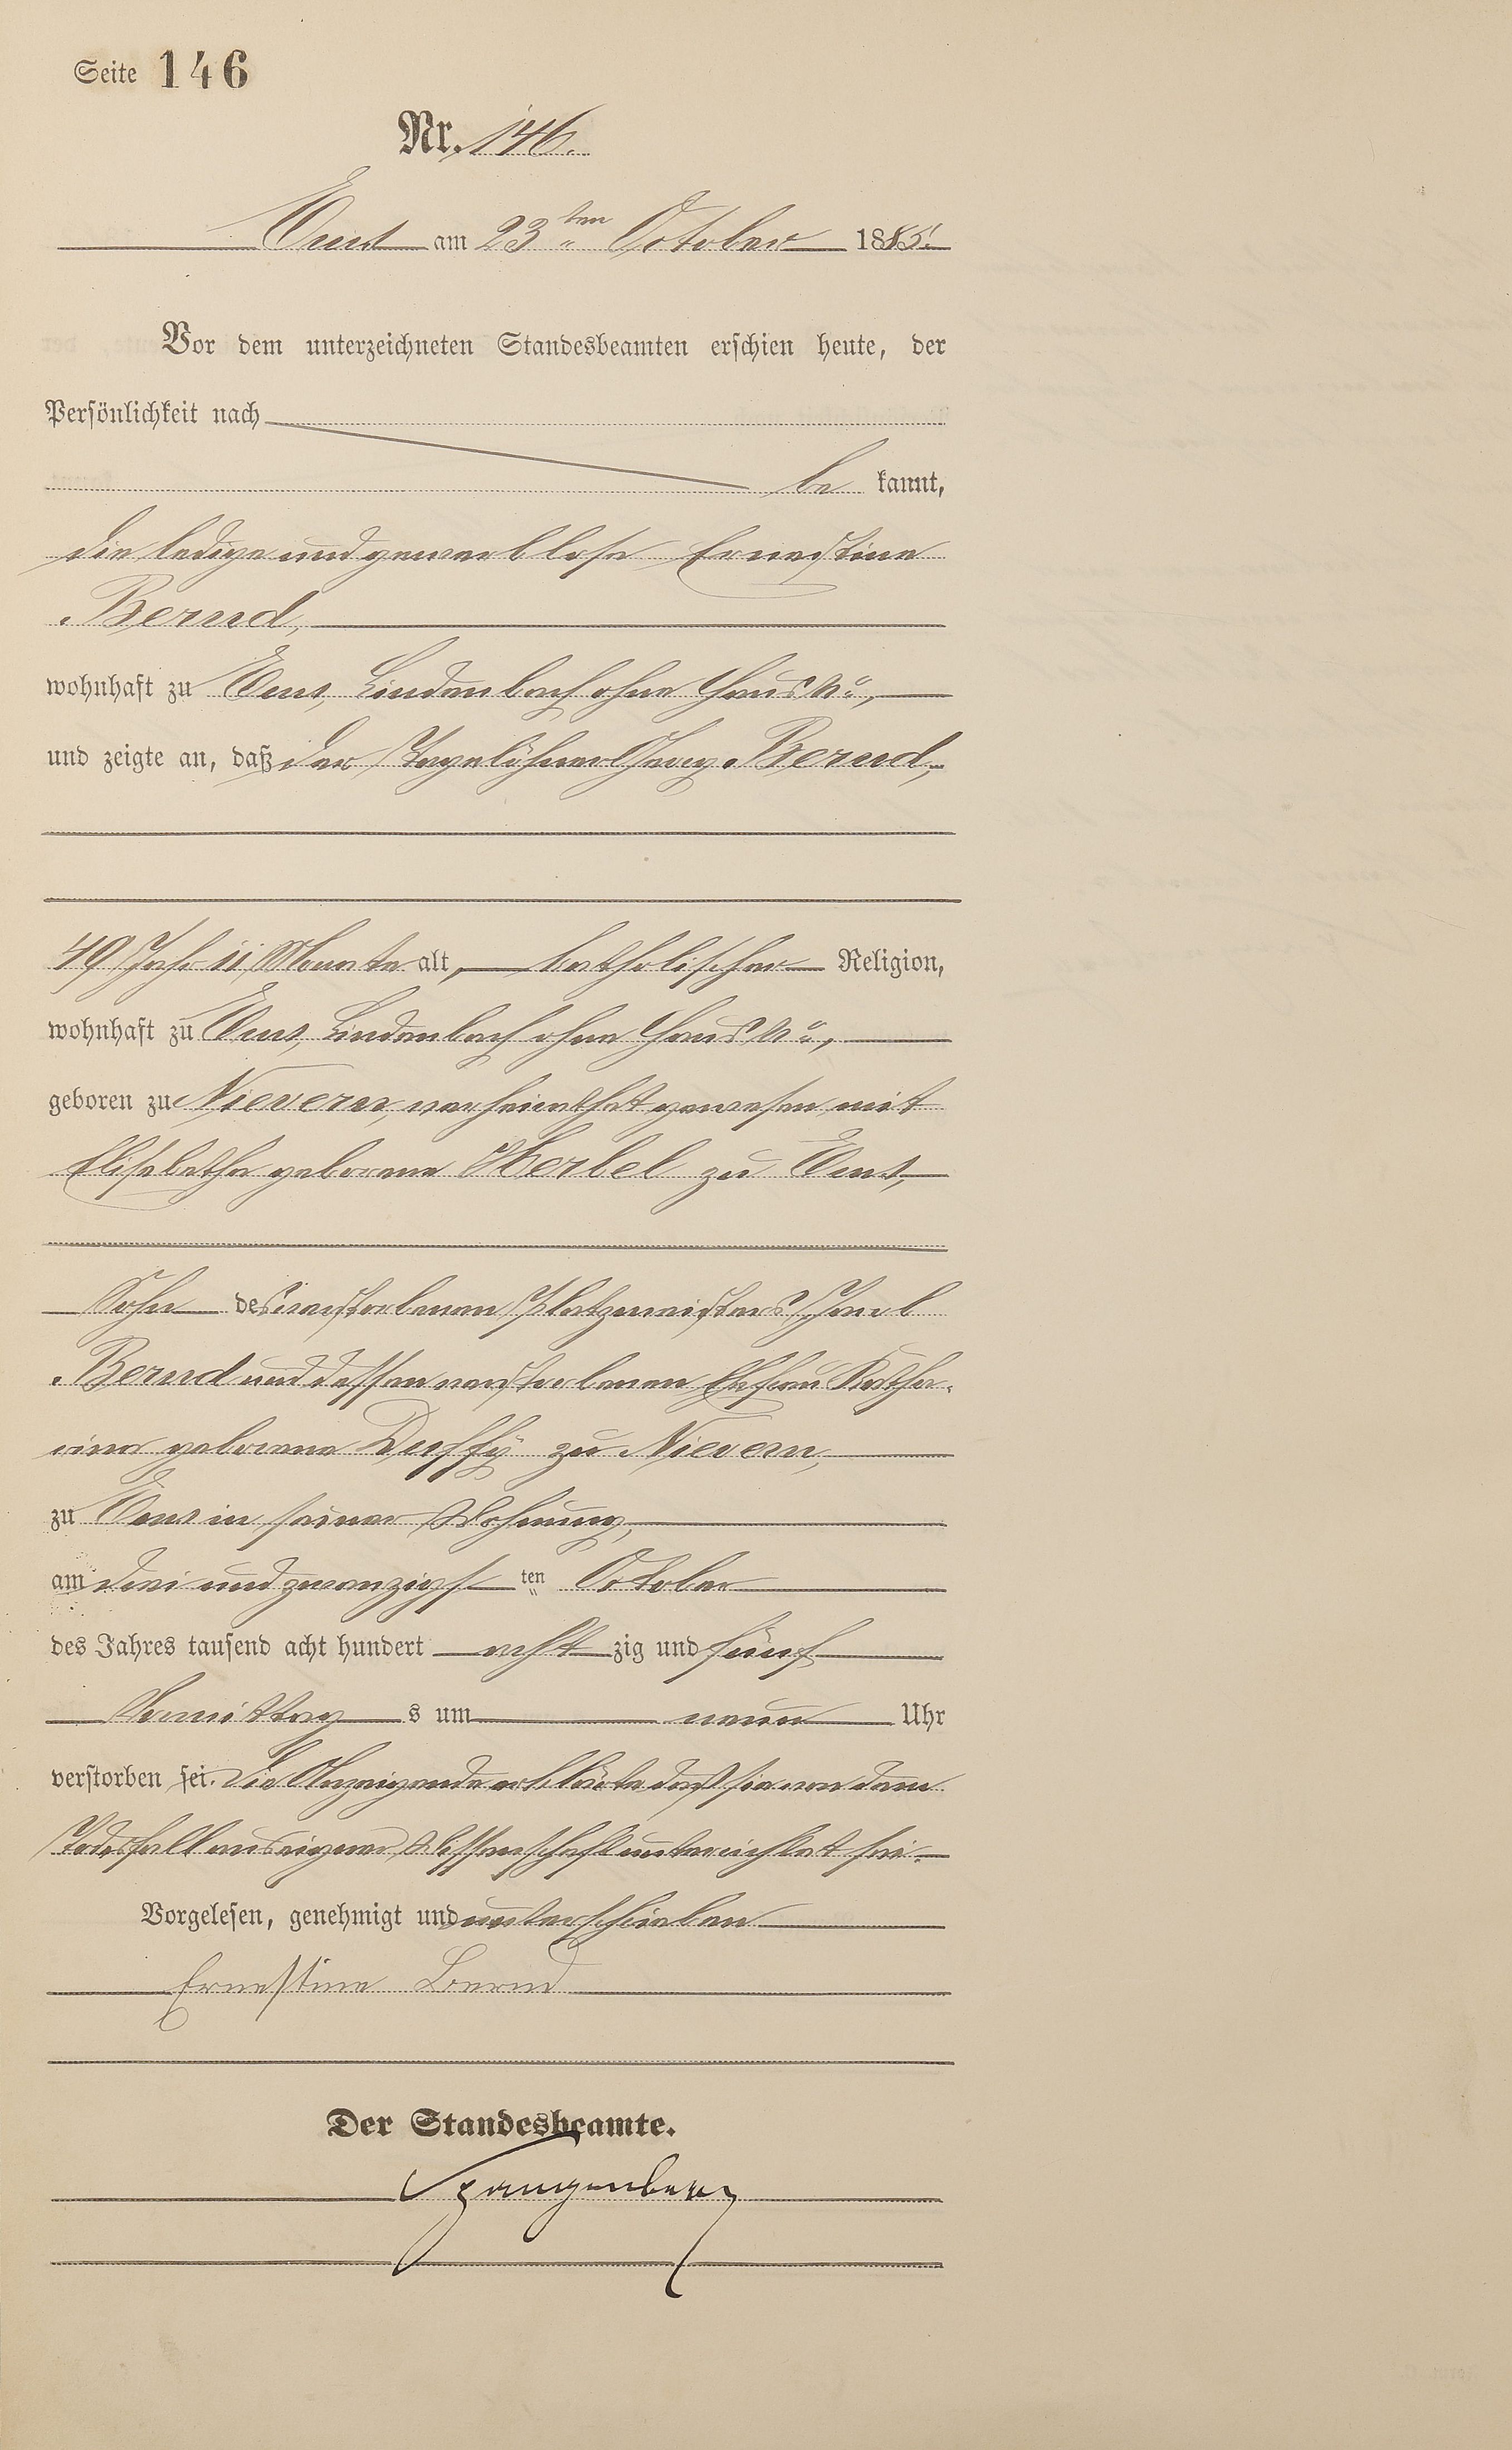 Seite 146
Nr. 146.
Ems am 23ten October 1885.
Vor dem unterzeichneten Standesbeamten erschien heute, der
Persönlichkeit nach
be kannt,
die ledige und gewerblose Ernestine
Bernd,
wohnhaft zu Ems, Lindenbach ohne Haus No,
und zeigte an, daß der Tagelöhner Georg Bernd,
49 Jahr 11 Monate alt, katholischer Religion,
wohnhaft zu Ems, Lindenbach ohne Haus No,
geboren zu Nievern, verheirathet gewesen mit
Elisabetha geborene Herbel zu Ems,
Sohn des verstorbenen Platzmeisters
Bernd und dessen verstorbenen Ehefrau Katha-
rina geborene Duffy zu Nievern,
zu Ems in seiner Wohnung,
am drei und zwanzigsten October
des Jahres tausend acht hundert acht zig und fünf
Vormittags um neun Uhr
verstorben sei. Die Anzeigende erklärte daß sie von dem
Todesfall aus eigener Wissenschaft unterrichtet sei.
Vorgelesen, genehmigt und unterschrieben
Ernestine Bernd
Der Standesbeamte.
Spangenberg